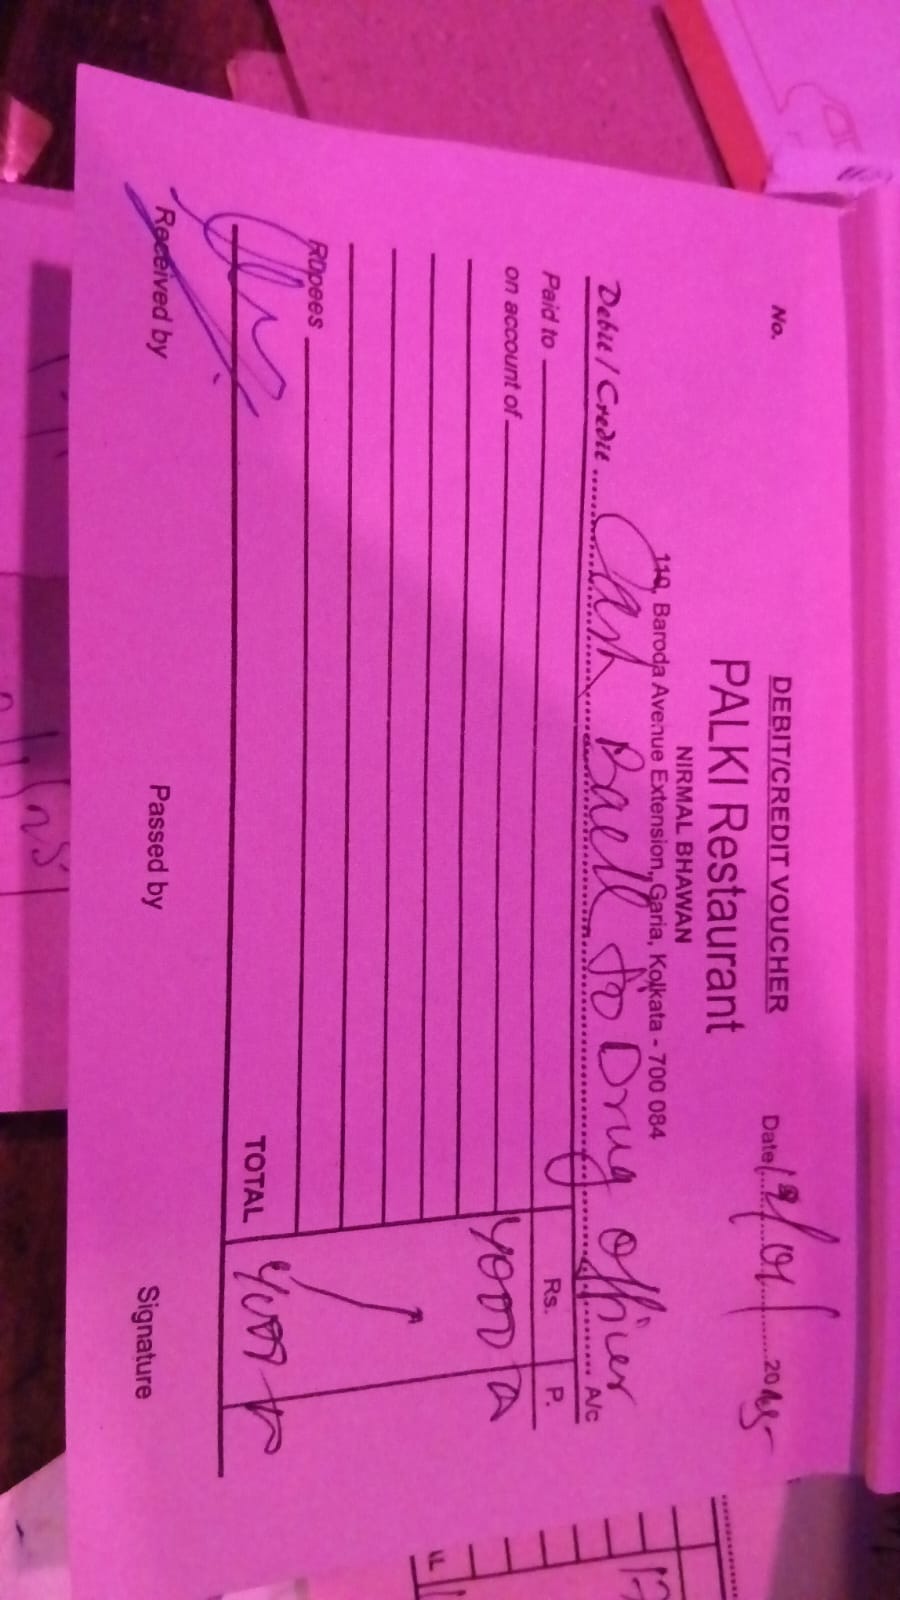 DEBIT/CREDIT VOUCHER
No.
PALKI Restaurant
Date 18/01/2025
NIRMAL BHAWAN
110, Baroda Avenue Extension, Garia, Kolkata - 700 084
Debit / Credit Cash Baell to Drug officer A/c
Paid to
Rs. P.
on account of
4000
Rupees
TOTAL 4000
Received by Passed by Signature